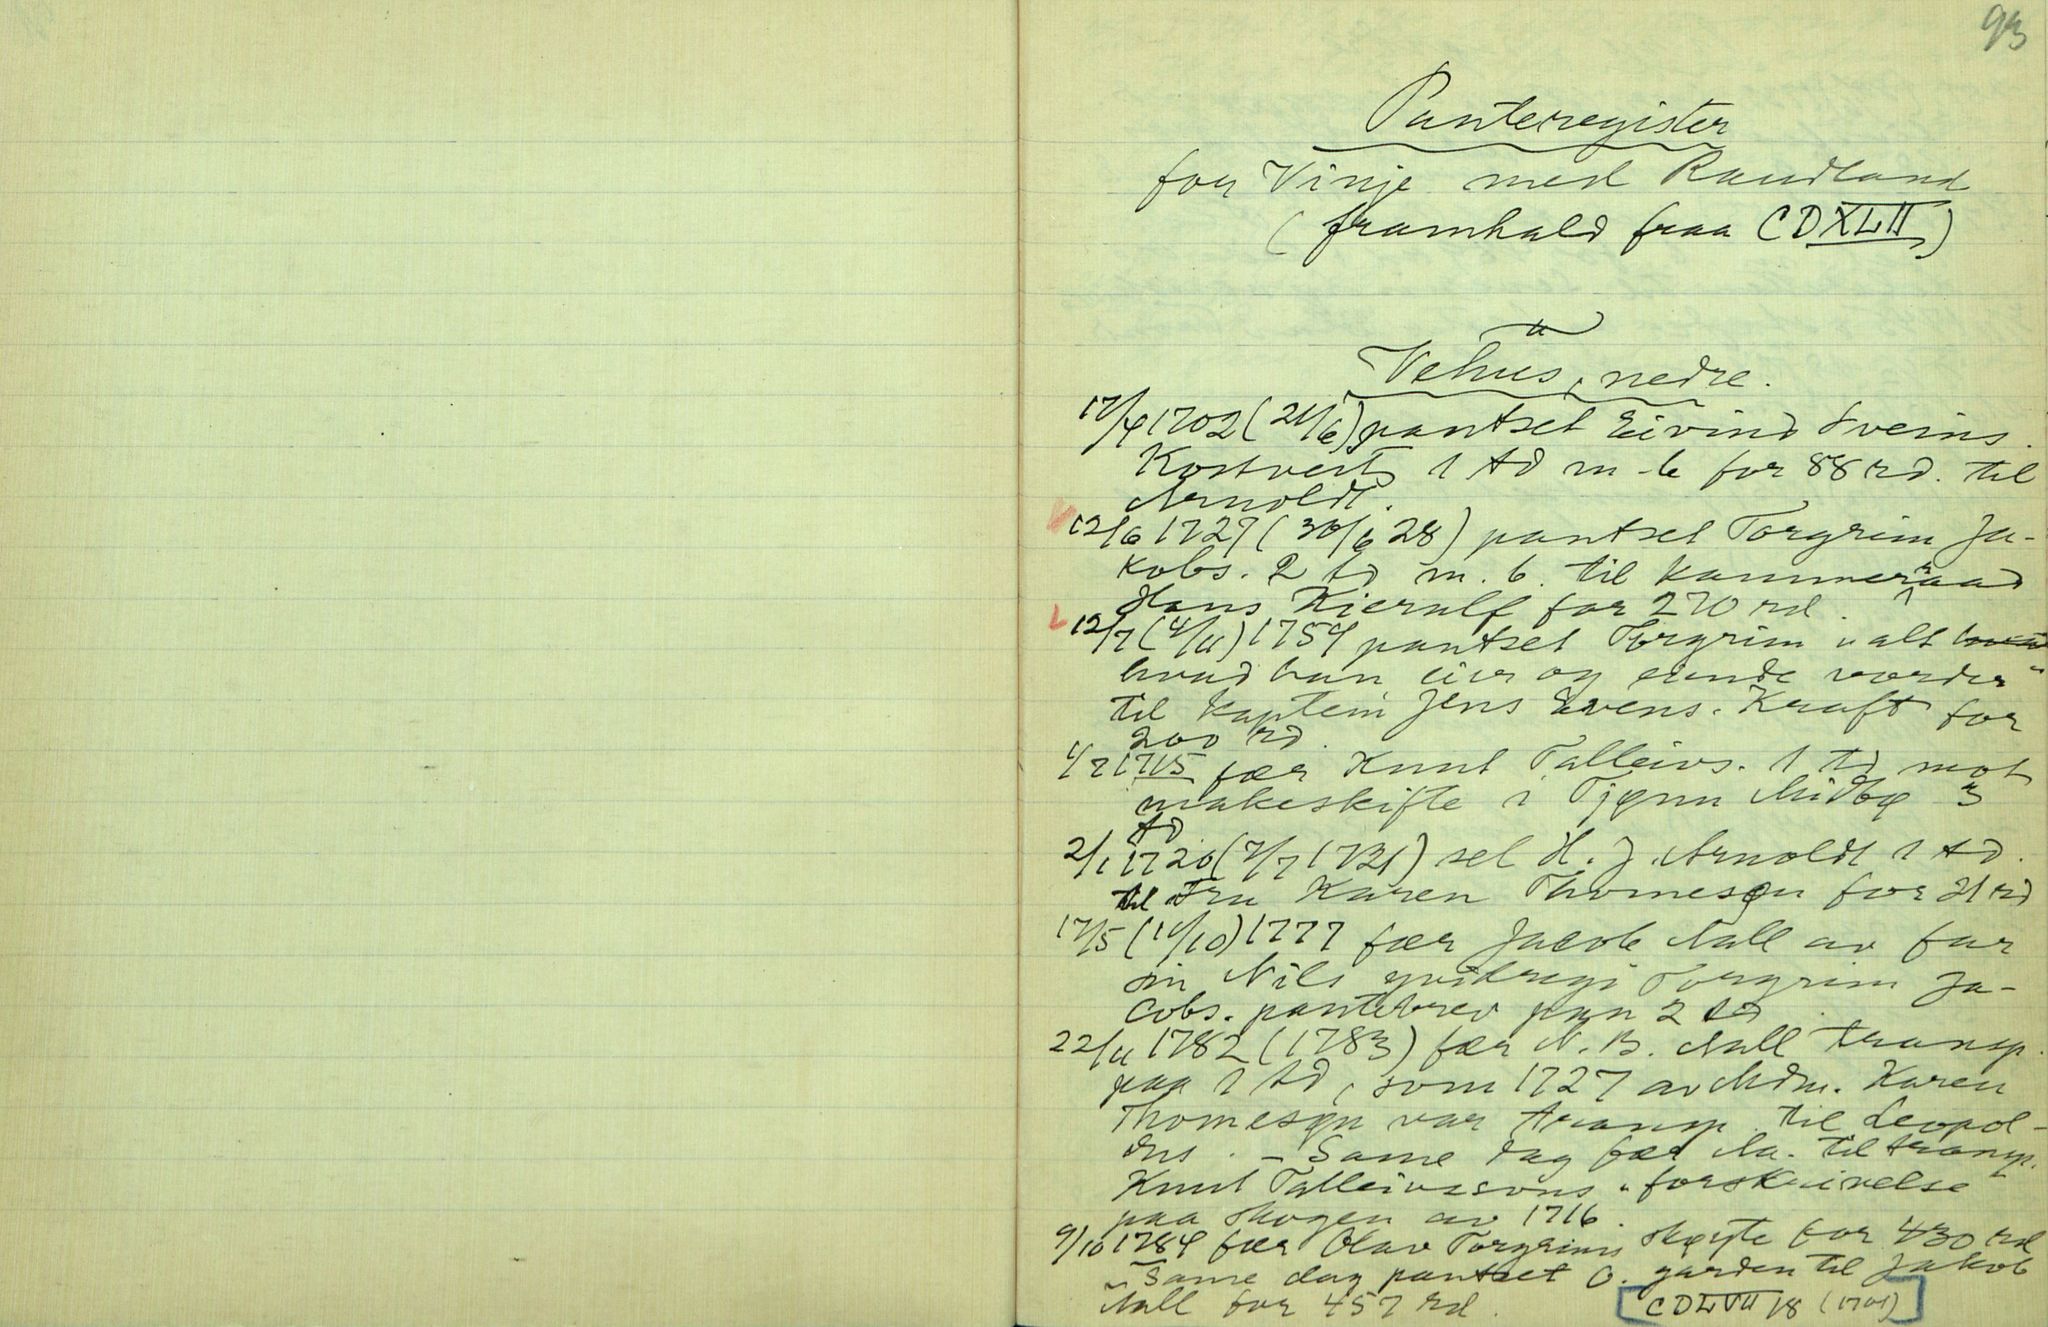 93
Panteregister
for Vinje med Raudland
(framhald fraa CDXLII)
Vehus, nedre.
17/4 1702 (21/6) pantset Eivind Sveins.
Kostveit 1 td m b for 88 rd. til
Arnoldt.
12/6 1727 (30/6 28) pantset Torgrim Ja-
kobs. 2 td m. b. til kammerraad
Hans Kierulf for 270 rd.
12/7 (4/11) 1754 pantset Torgrim "alt
hvad han eier og eiende vorder"
til kaptein Jens Evens. Kraft for
200 rd.
1/7 1715 fær Knut Talleivs. 1 td mot
makeskifte i Tjønn Midbø 3
td
2/1 1720 (7/7 1731) sel H. J. Arnoldt 1 td.
til Fru Karen Thomesøn for 21 rd
17/5 (11/10) 1777 fær Jacob Aall av far
sin Nils Torgrim Ja-
cobs. pantebrev paa 2 td.
22/11 1782 (1783) fær N. B. Aall transp.
paa 1 td, som 1727 av Mdm. Karen
Thomesøn var transp. til Leopol-
dus. - Same dag fær Aa. til transp.
Knut Talleivssons "forskrivelse
paa skogen av 1716.
9/10 1784 fær Olav Torgrims skøyte for 430 rd
- Same dag pantset O. garden til Jakob
Aall for 457 rd.
CDLVII 18 (1701)